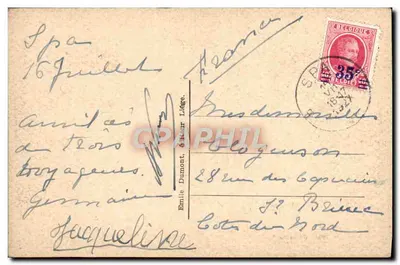 Spa
16 Juillet
Amitiés
de trois
voyageuses
Germaine
Jacqueline
France
Emile Dumont, éditeur Liége.
BELGIQUE
35
SPA
Mesdemoiselles
28 rue des Capucins
St Brieuc
Côtes du Nord
CPAPHIL